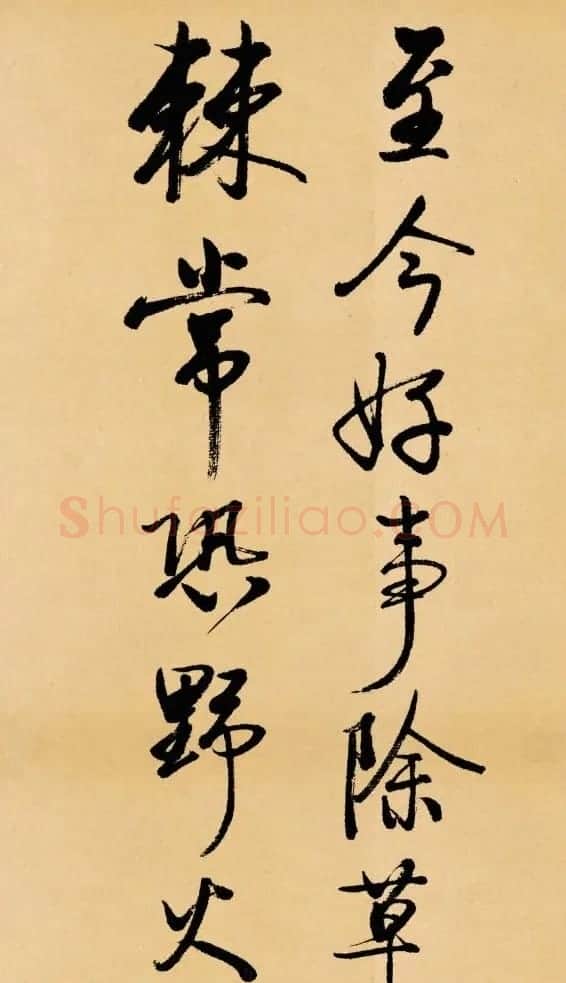 至今好事除草
棘常恐野火
Shufaziliao.COM